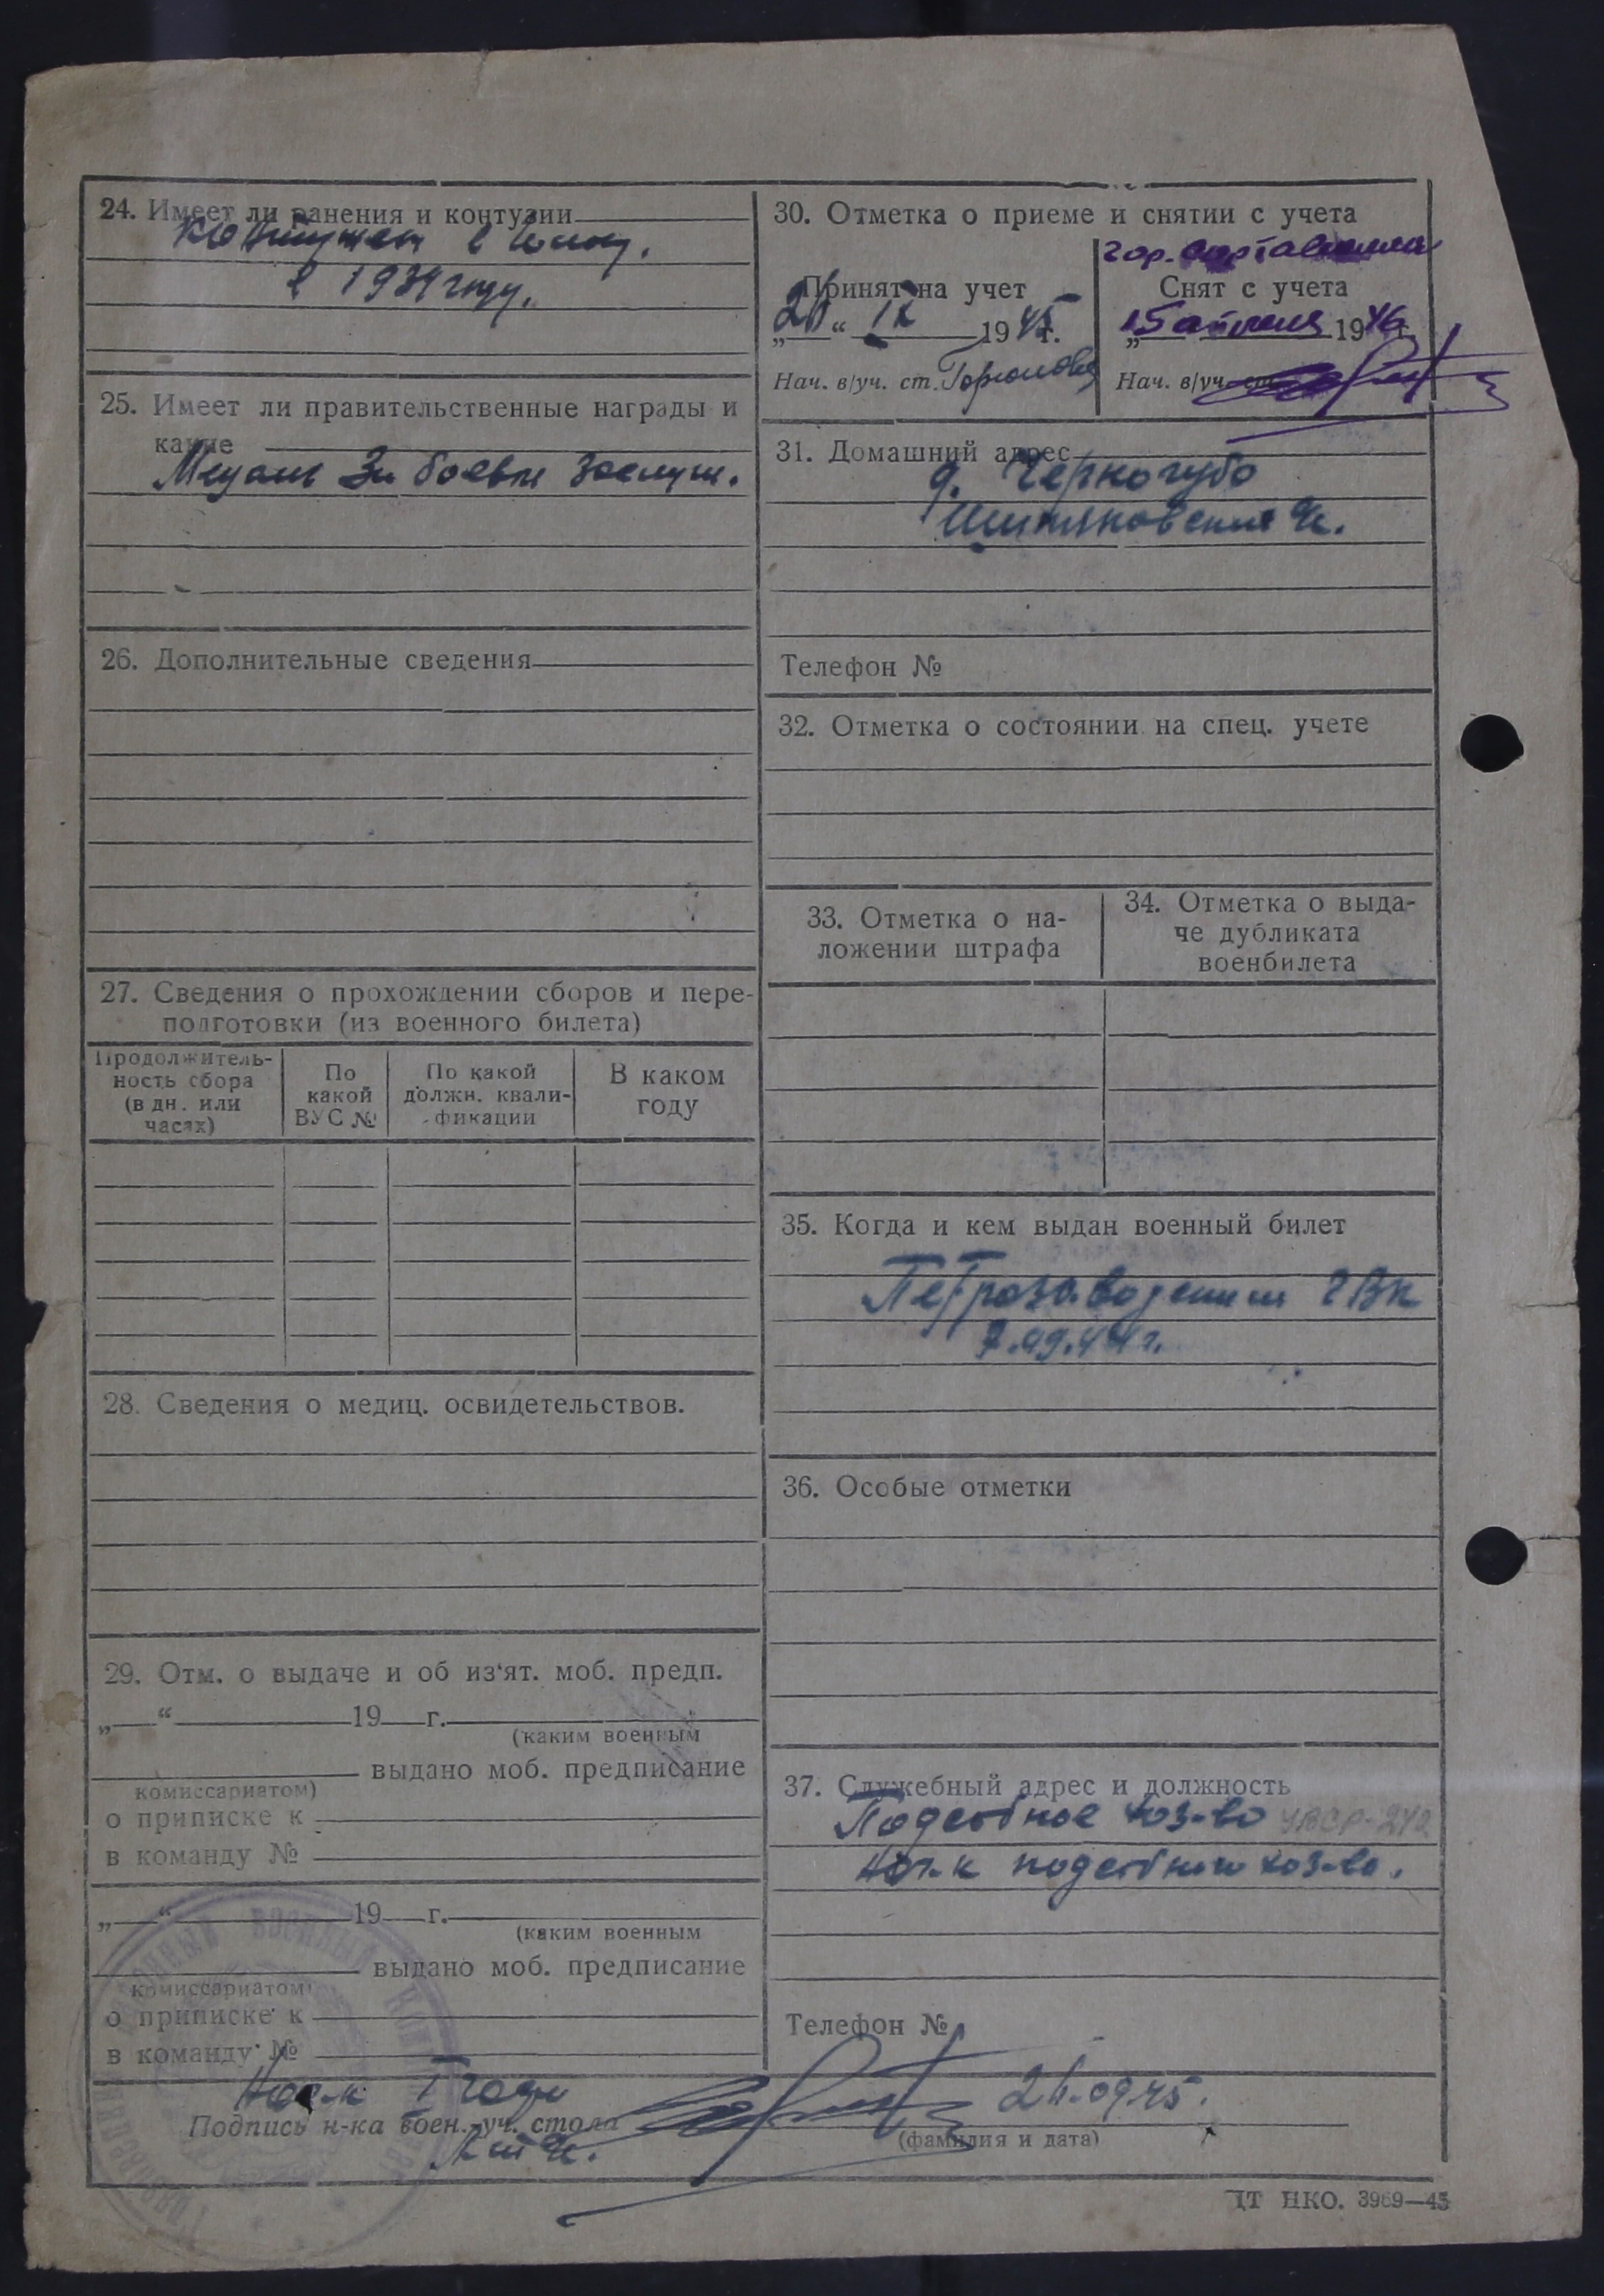 24. Имеет ли ранения и контузии
Контужен в
в 1939 году.
25. Имеет ли правительственные награды и
какие
Медаль За боевы заслуги.
26. Дополнительные сведения
27. Сведения о прохождении сборов и пере-
подготовки (из военного билета)
Продолжитель-
ность сбора
(в дн. или
часах)
По
какой
ВУС №
По какой
должн. квали-
фикации
В каком
году
28. Сведения о медиц. освидетельствов.
29. Отм. о выдаче и об из'ят. моб. предп.
„ “ 19 г.
(каким военным
выдано моб. предписание
комиссариатом)
о приписке к
в команду №
„ “ 19 г.
(каким военным
выдано моб. предписание
комиссариатом)
о приписке к
в команду №
30. Отметка о приеме и снятии с учета
гор. Сортавала
Принят на учет
„26“ IX 1945г.
Нач. в/уч. ст.
Снят с учета
„15 апреля 1946 г.
Нач. в/уч. ст.
31. Домашний адрес
д. Черногубо
Телефон №
32. Отметка о состоянии на спец. учете
33. Отметка о на-
ложении штрафа
34. Отметка о выда-
че дубликата
военбилета
35. Когда и кем выдан военный билет
Петрозаводским ГВК
7.09.44 г.
36. Особые отметки
37. Служебный адрес и должность
Подсобное хоз-во УВСР-242
Нач-к подсобного хоз-ва.
Телефон №
Нач-к I части
Подпись н-ка воен. уч. стола
26.09.45.
(фамилия и дата)
ЦТ НКО. 3969—45